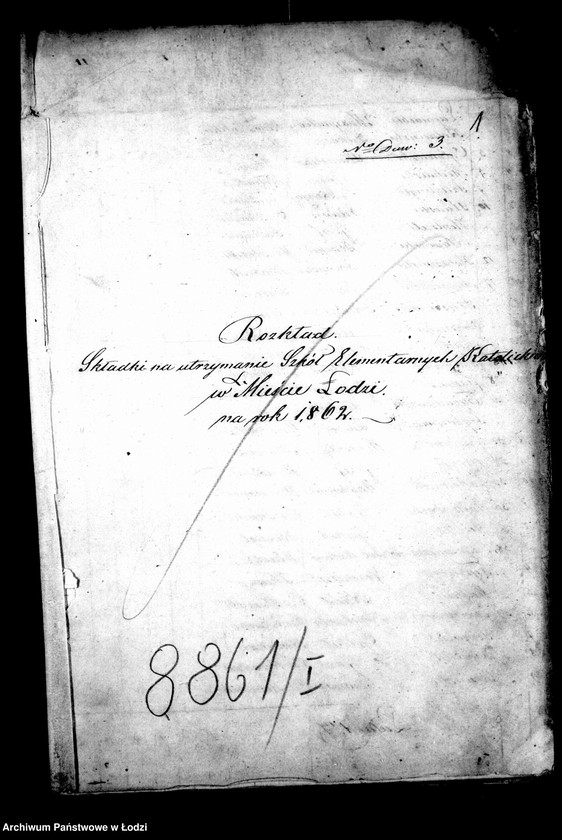 1
Nro Dow: 3.
Rozkład.
Składki na utrzymanie Szkół Elementarnych Katolickich
w Mieście Łodzi.
na rok 1862.
8861/I
Archiwum Państwowe w Łodzi